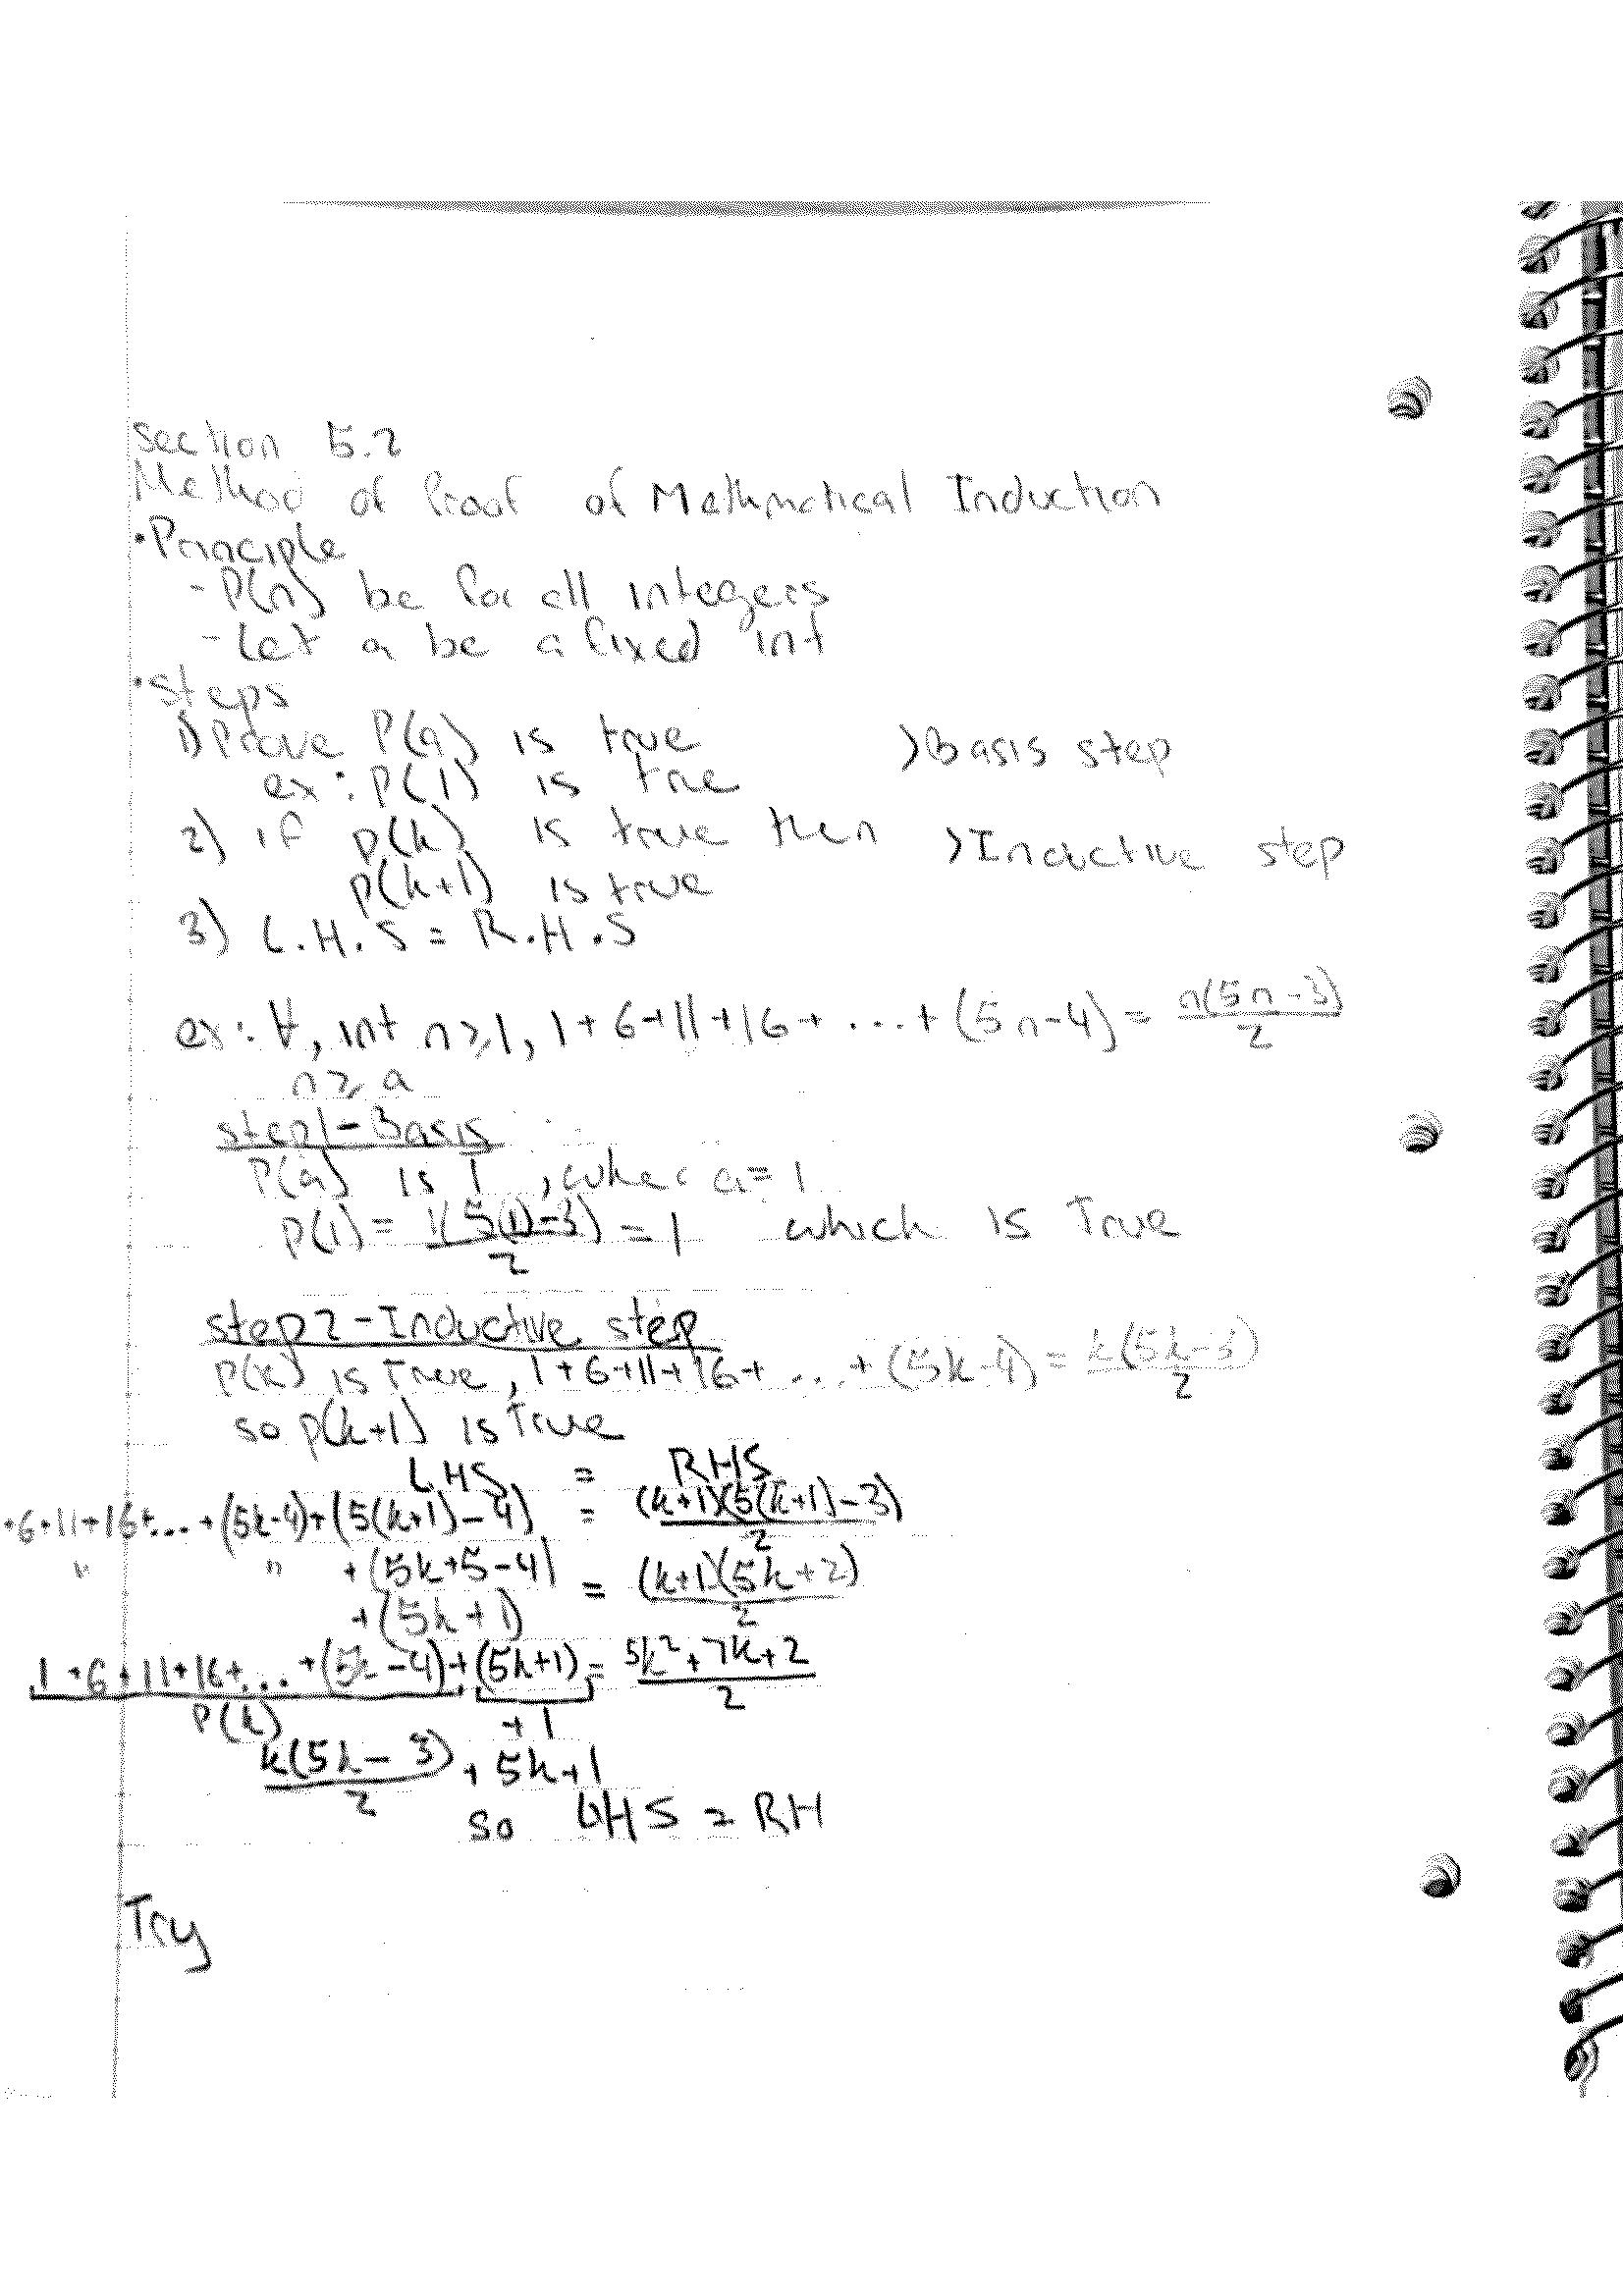 section 5.2
Method of Proof of Mathmatical Induction
• Principle
- P(n) be for all integers
- Let a be a fixed int
• Steps
1) Prove P(a) is true } Basis step
ex: P(1) is true
2) if p(k) is true then } Inductive step
p(k+1) is true
3) L.H.S = R.H.S
ex: ∀, int n ≥ 1, 1 + 6 + 11 + 16 + ... + (5n-4) = n(5n-3)/2
n ≥ a
step 1 - Basis
P(a) is 1, wher a = 1
P(1) = 1(5(1)-3)/2 = 1 which is True
step 2 - Inductive step
P(k) is True, 1 + 6 + 11 + 16 + ... + (5k-4) = k(5k-3)/2
so p(k+1) is True
LHS = RHS
+6+11+16+... + (5k-4) + (5(k+1)-4) = (k+1)(5(k+1)-3)/2
" " + (5k+5-4) = (k+1)(5k+2)/2
+ (5k+1)
1 + 6 + 11 + 16 + ... + (5k-4) + (5k+1) = 5k²+7k+2/2
P(k) +1
k(5k-3)/2 + 5k+1
so LHS = RH
Try